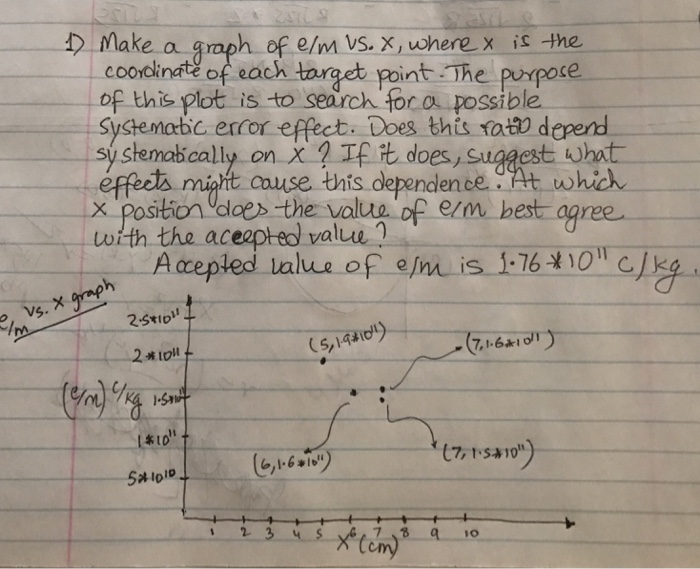 1) Make a graph of e/m vs. x, where x is the
coordinate of each target point. The purpose
of this plot is to search for a possible
systematic error effect. Does this ratio depend
systematically on x? If it does, suggest what
effects might cause this dependence. At which
x position does the value of e/m best agree
with the accepted value?
Accepted value of e/m is 1.76*10¹¹ C/kg.
e/m vs. x graph
2.5*10¹¹
2*10¹¹
(e/m) C/kg 1.5*10¹¹
1*10¹¹
5*10¹⁰
(5, 1.9*10¹¹)
(7, 1.6*10¹¹)
(6, 1.6*10¹¹)
(7, 1.5*10¹¹)
1 2 3 4 5 6 7 8 9 10
X (cm)